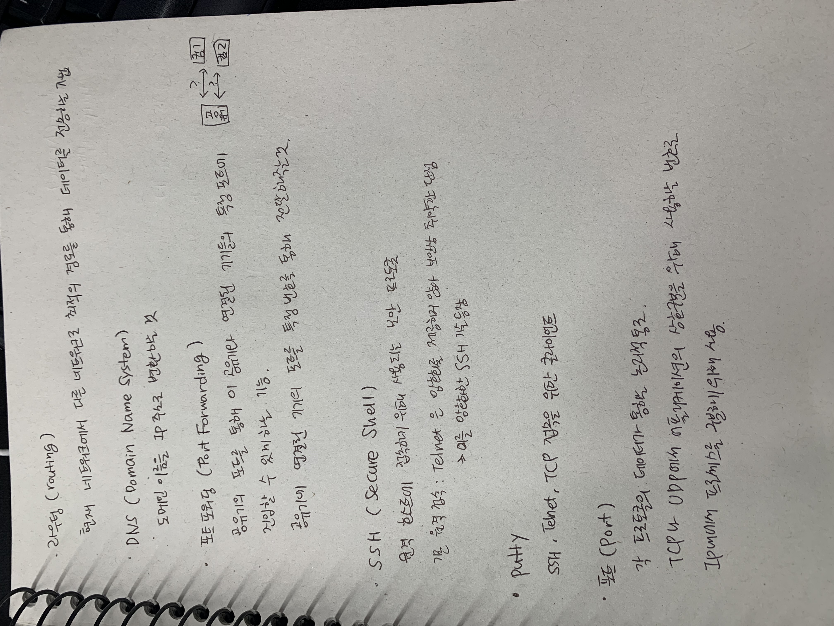 · 라우팅 (routing)
현재 네트워크에서 다른 네트워크로 최적의 경로를 통해 데이터를 전송하는 기법
· DNS (Domain Name System)
도메인 이름을 IP 주소로 변환하는 것
· 포트포워딩 (Port Forwarding)
공유기의 포트를 통해 이 공유기와 연결된 기기들의 특정 포트에
진입할 수 있게하는 기능.
공유기에 연결된 기기의 포트를 특정 번호를 통해 전달해주는 것.
공유기
컴1
컴2
?
?
· SSH (Secure Shell)
원격 접속하기 위해 사용되는 보안 프로토콜
기존 원격 접속 : Telnet 은 암호화를 제공하지 않아 보안상 취약한 단점
→ 이를 암호화한 SSH 기술 등장
· putty
SSH, Telnet, TCP 접속을 위한 클라이언트
· 포트 (Port)
각 프로토콜의 데이터가 통하는 논리적 통로.
TCP나 UDP에서 어플리케이션의 상호구분을 위해 사용하는 번호로
IP내에서 프로세스를 구분하기 위해 사용.